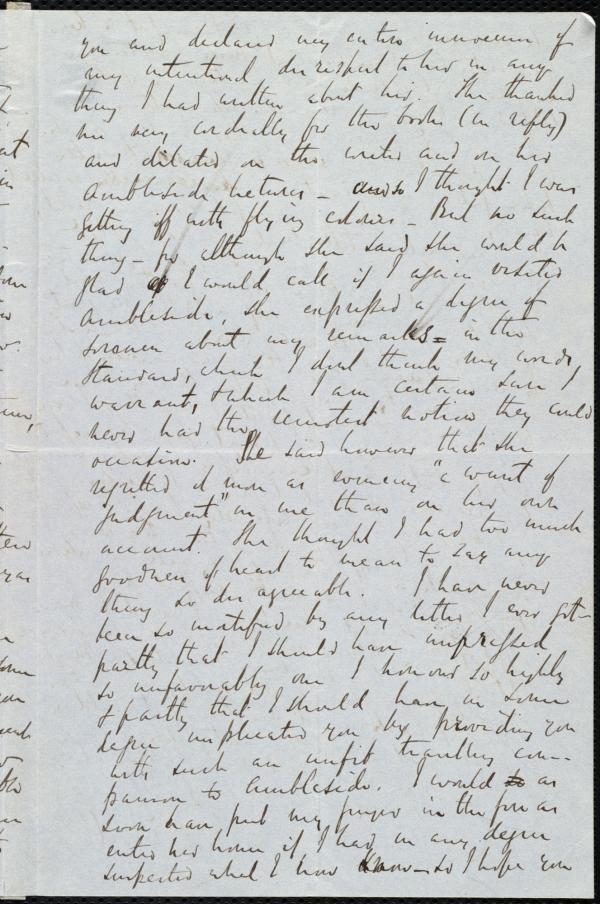 you and declared my entire innocence of
my intentional disrespect to her in any
thing I had written about her. She thanked
me very cordially for the books (in reply)
and dilated on the writer and on his
Ambleside lectures – and so I thought I was
getting off with flying colours – But no such
thing – for although she said she would be
glad if I would call if I again visited
Ambleside, she expressed a degree of
soreness about my remarks – in the
Standard, which I dont think my words
warrant, & which I am certain sure I
never had the remotest notion they could
occasion. She said however that she
regretted it more as evincing "a want of
judgment" in me than on her own
account. She thought I had too much
goodness of heart to mean to say any
thing so disagreeable. I have never
been so mortified by any letter I ever got –
partly that I should have impressed
so unfavourably one I honour so highly
& partly that I should have in some
degree implicated you by providing you
with such an unfit travelling com–
panion to Ambleside. I would to as
soon have put my finger in the fire as
enter her house if I had in any degree
suspected what I now know – so I hope you